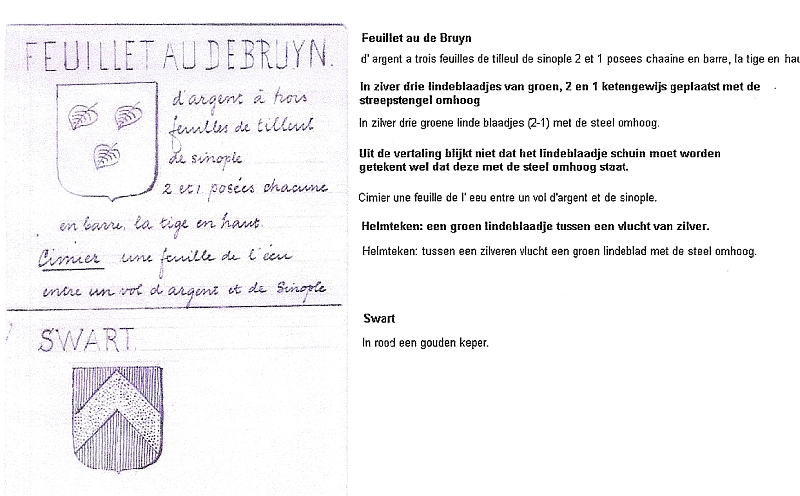 FEUILLET AU DE BRUYN.
d'argent à trois
feuilles de tilleul
de sinople
2 et 1 posées chacune
en barre, la tige en haut.
Cimier une feuille de l'écu
entre un vol d'argent et de Sinople
SWART.
Feuillet au de Bruyn
d' argent a trois feuilles de tilleul de sinople 2 et 1 posees chaaine en barre, la tige en hau
In zilver drie lindeblaadjes van groen, 2 en 1 ketengewijs geplaatst met de
streepstengel omhoog
In zilver drie groene linde blaadjes (2-1) met de steel omhoog.
Uit de vertaling blijkt niet dat het lindeblaadje schuin moet worden
getekent wel dat deze met de steel omhoog staat.
Cimier une feuille de l' eeu entre un vol d'argent et de sinople.
Helmteken: een groen lindeblaadje tussen een vlucht van zilver.
Helmteken: tussen een zilveren vlucht een groen lindeblad met de steel omhoog.
Swart
In rood een gouden keper.